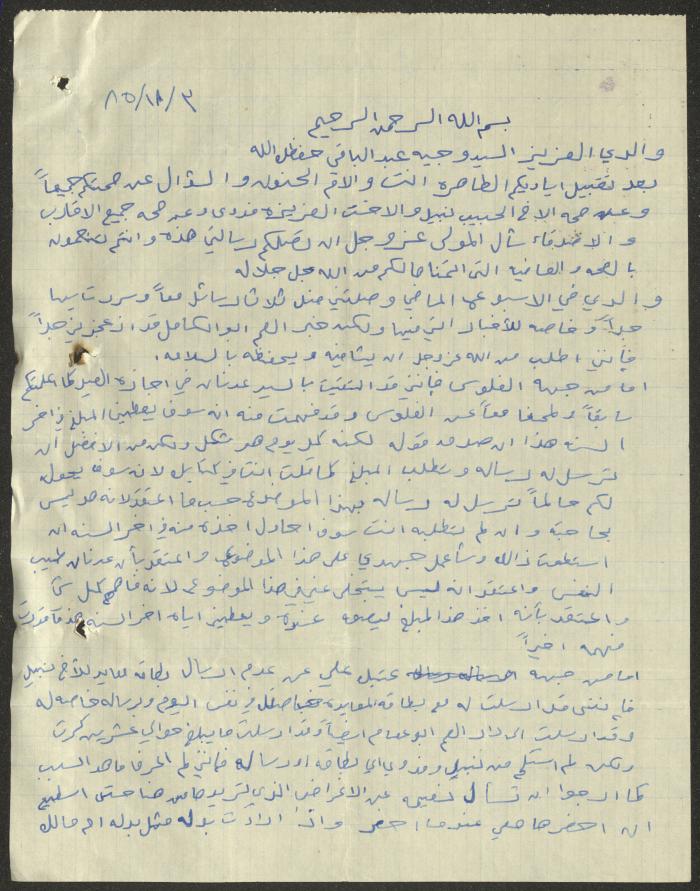 ٨٥/١٨/٣
بسم الله الرحمن الرحيم
والدي العزيز السيد وجيه عبد الباقي حفظك الله
بعد تقبيل اياديكم الطاهرة انت والام الحنونه والسؤال عن صحتكم جميعاً
وعن صحه الاخ الحبيب نبيل والاخت العزيزة فدوى وعن صحه جميع الاقارب
والاصدقاء سأل المولى عز وجل ان تصلكم رسالتي هذه وانتم تنعمون
بالصحه والعافيه التي اتمناها لكم من الله جل جلاله
والدي في الاسبوع الماضي وصلتني منك ثلاث رسائل معاً وسررت بها
جداً وخاصه للأخبار التي فيها ولكن خبر العم ابو الكامل قد جداً
فإنني اطلب من الله عز وجل ان يشافيه ويحفظه بالسلامه.
اما من جهة الفلوس فإنني قد التقيت بالسيد عدنان في اجازة العيد كما اعلمتكم
سابقاً معاً عن الفلوس وقد فهمت منه انه سوف يعطيني المبلغ في اخر
السنه هذا ان صدق قوله لكنه كل يوم هو شكل ولكن من الافضل ان
ترسل له رساله وتطلب المبلغ كما قلت انت في لانه سوف يحوله
لكم حالماً ترسل له رساله بهذا الموضوع حسب ما اعتقد لانه هو ليس
بحاجه وان لم تطلبه انت سوف احاول اخذه منه في اخر السنه ان
استطعت ذلك وسأعمل جهدي على هذا الموضوع واعتقد بأن عدنان طيب
النفس واعتقد انه ليس يتخلى عني في هذا الموضوع لانه فاهم كل شئ
واعتقد بأنه اخذ هذا المبلغ عنده ويعطيني اياه اخر السنه هذه
منه اخيراً
اما من جهة عتبك علي عن عدم ارسال بطاقه للأخ نبيل
فإنني قد ارسلت له بطاقة المعايدة في نفس اليوم وبرساله خاصه له
وقد ارسلت الى دار العم ابو ايضاً وقد ارسلت ما يبلغ حوالي عشرين كرت
ولكن لم استلم من نبيل وفدوى اي بطاقه او رساله فإنني لم اعرف ما هو السبب
كما ارجو ان تسأل عن الاغراض الذي تريدها من هنا حتى استطيع
ان احضرها معي عندما احضر واذا ارادت بدله مثل بدله